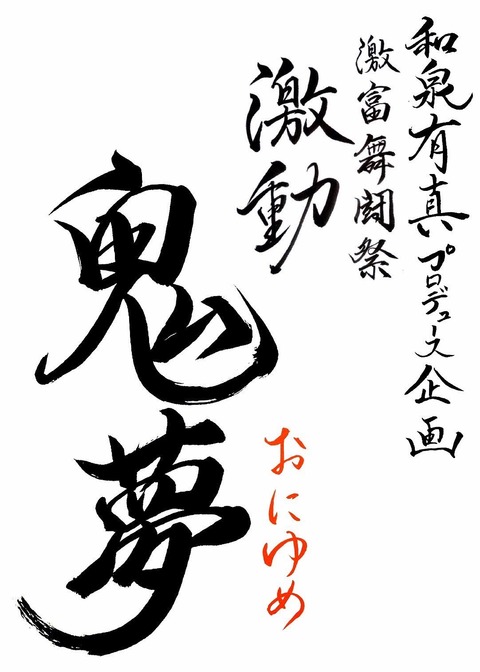 和泉有真プロデュース企画
激富舞闘祭
激動
鬼夢
おにゆめ